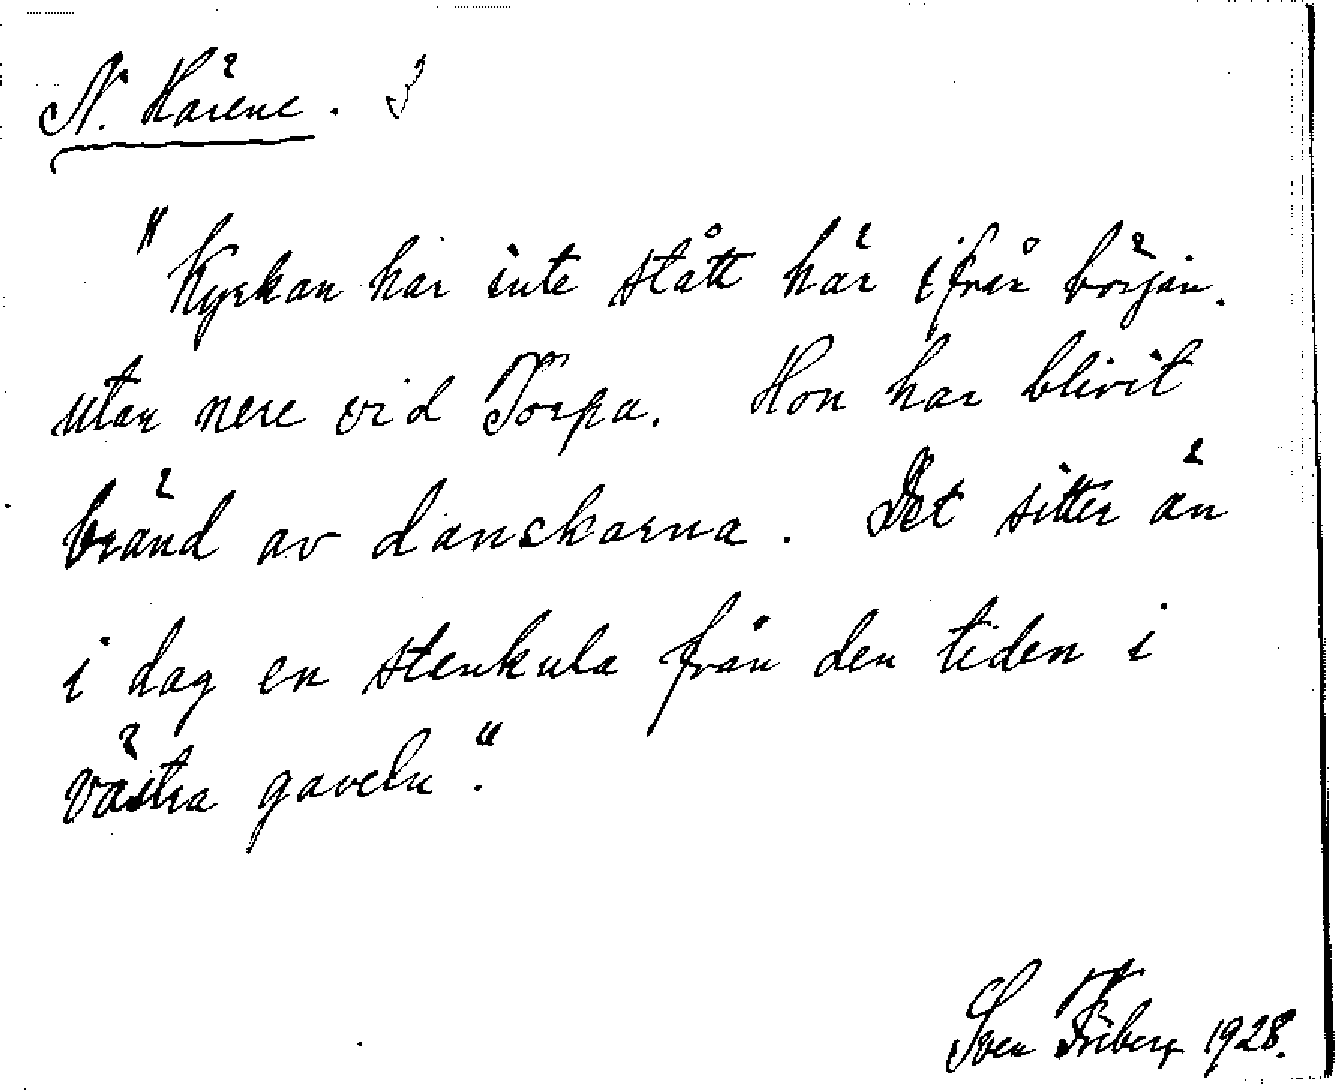 N. Härene. 3
"Kyrkan har inte stått här ifrån början.
utan nere vid Torpa. Hon har blivit
bränd av danskarna. Det sitter än
i dag en stenkula från den tiden i
västra gaveln."
Sven Friberg 1928.